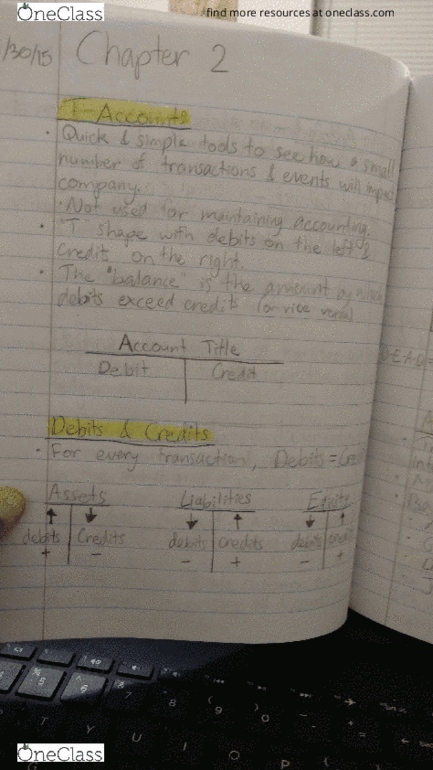 OneClass
find more resources at oneclass.com
/30/15
Chapter 2
T-Accounts
• Quick & simple tools to see how a small
number of transactions & events will impact
company.
• Not used for maintaining accounting.
• "T" shape with debits on the left &
credit on the right.
• The "balance" is the amount by which
debits exceed credits (or vice versa)
Account Title
Debit Credit
Debits & Credits
• For every transaction, Debits = Cre
Assets Liabilities Equity
↑ ↓ ↓ ↑ ↓ ↑
debits Credits debits credits debits credits
+ - - + - +
OneClass